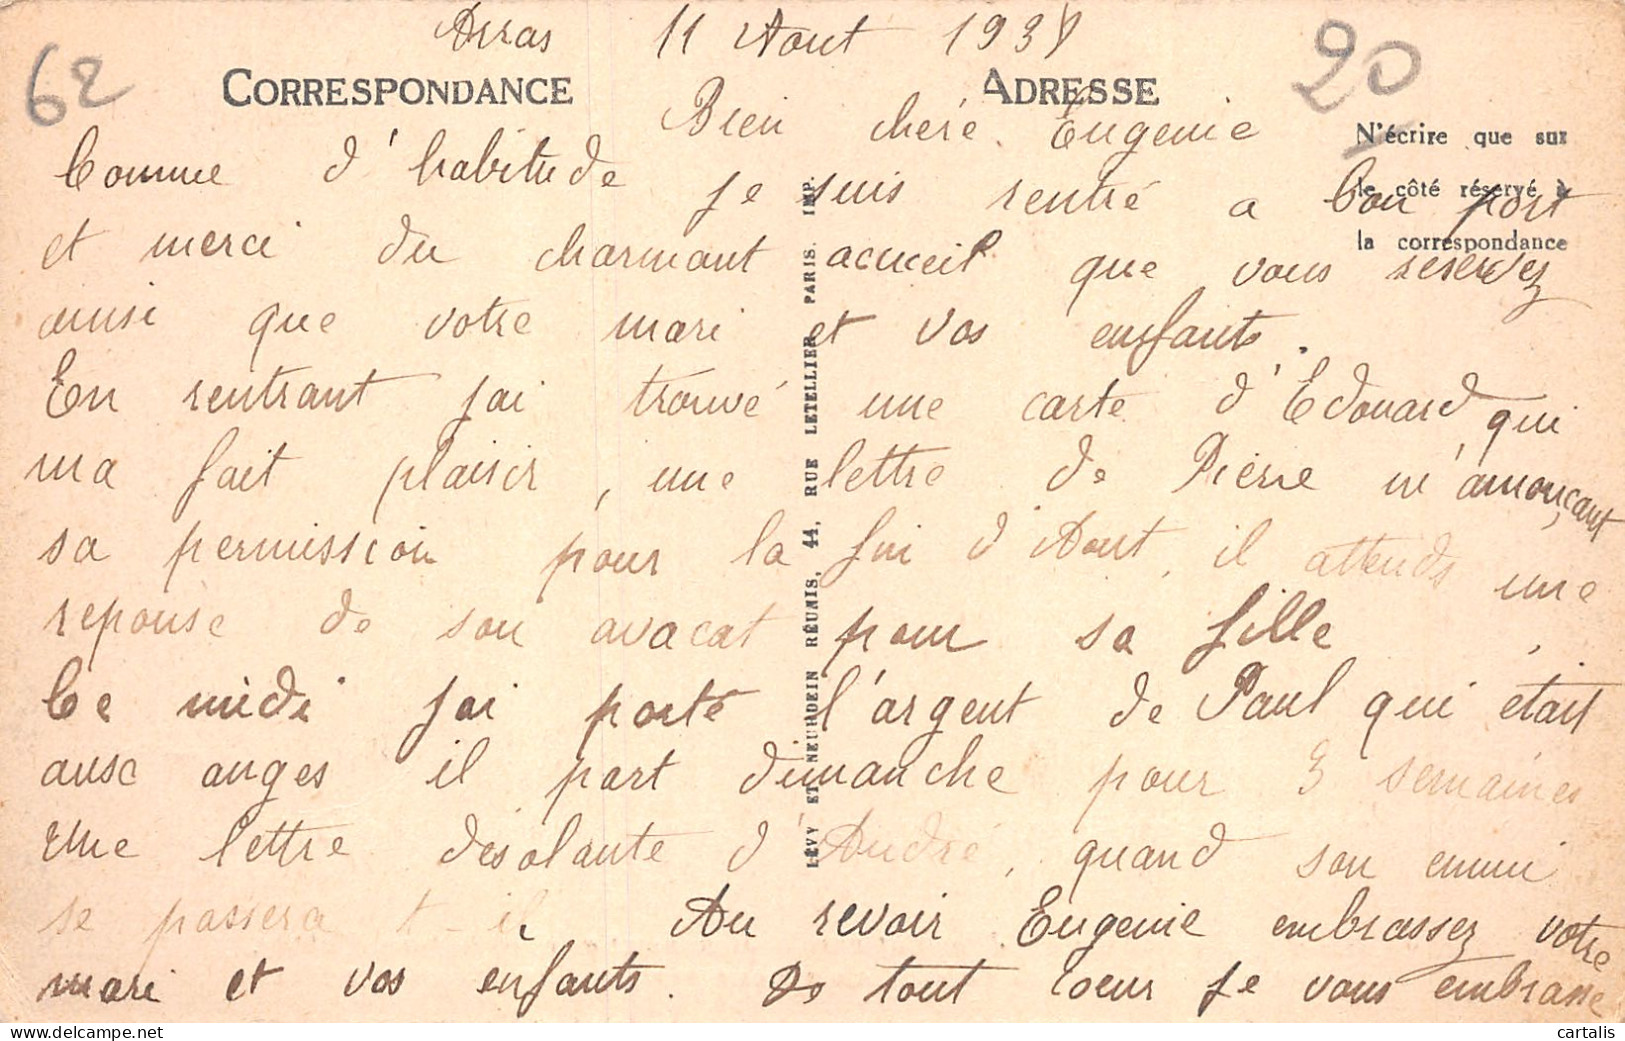 Arras 11 Aout 193
62
20
CORRESPONDANCE
ADRESSE
N'écrire que sur
le côté réservé à
la correspondance
Bien chère Eugenie
Comme d'habitude je suis rentré a bon port
et merci du charmant accueil que vous reservez
ainsi que votre mari et vos enfants.
En rentrant jai trouvé une carte d'Edouard qui
ma fait plaisir, une lettre de Pierre m'anonçant
sa permission pour la fin d'Aout, il attends une
reponse de son avacat pour sa fille.
Ce midi jai porté l'argent de Paul qui était
aux anges il part dimanche pour 3 semaines
Une lettre désolante d'André, quand son ennui
se passera t-il Au revoir Eugenie embrassez votre
mari et vos enfants. De tout coeur je vous embrasse
LÉVY ET NEURDEIN RÉUNIS, 44, RUE LETELLIER, PARIS. IMP.
www.delcampe.net
cartalis